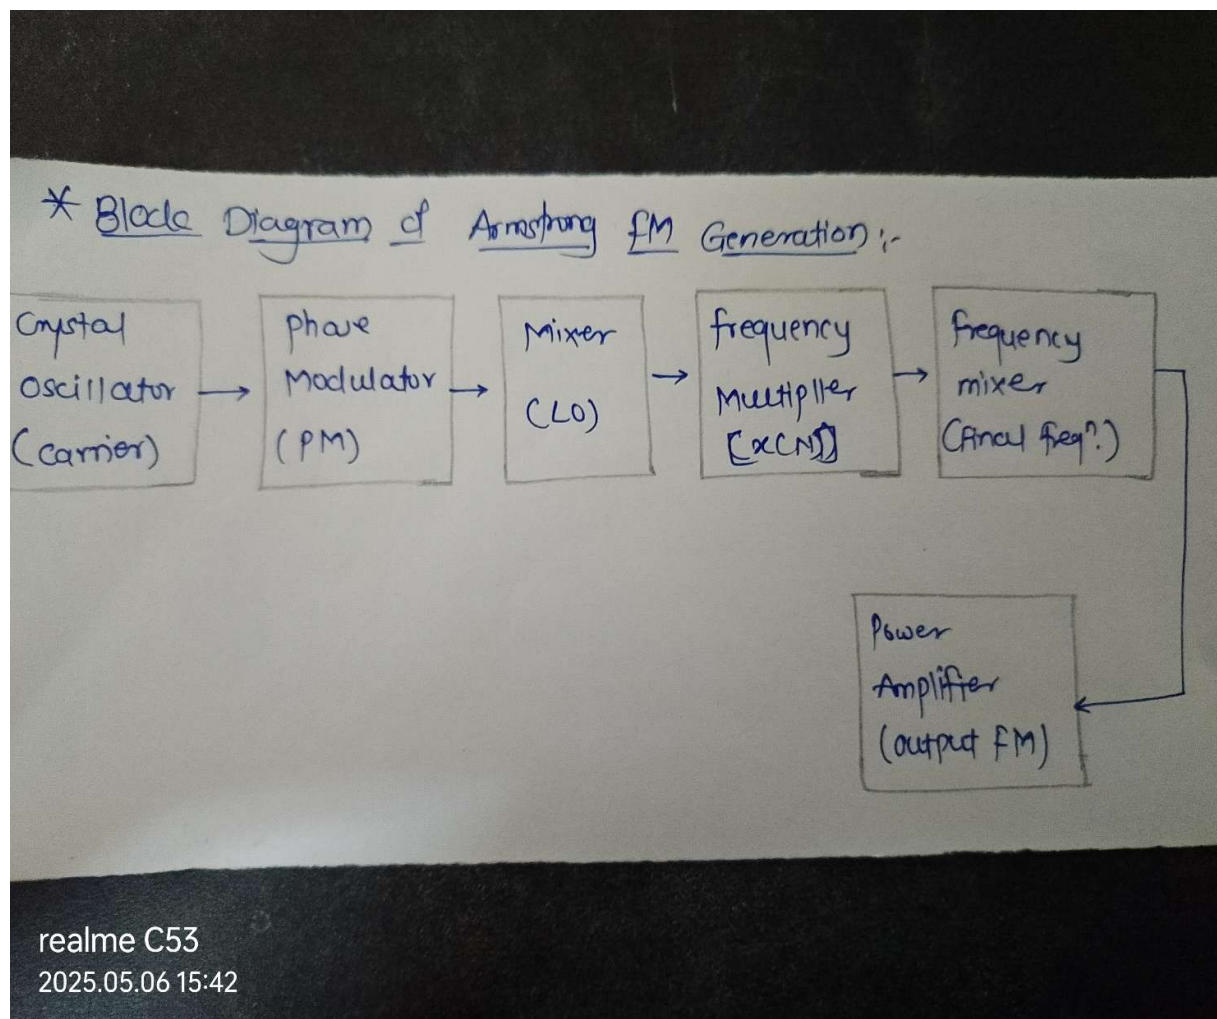 * Block Diagram of Armstrong FM Generation :-
Crystal
Oscillator
(Carrier)
Phase
Modulator
(PM)
Mixer
(LO)
frequency
Multiplier
[x(N)]
frequency
mixer
(final freqn.)
Power
Amplifier
(output FM)
realme C53
2025.05.06 15:42